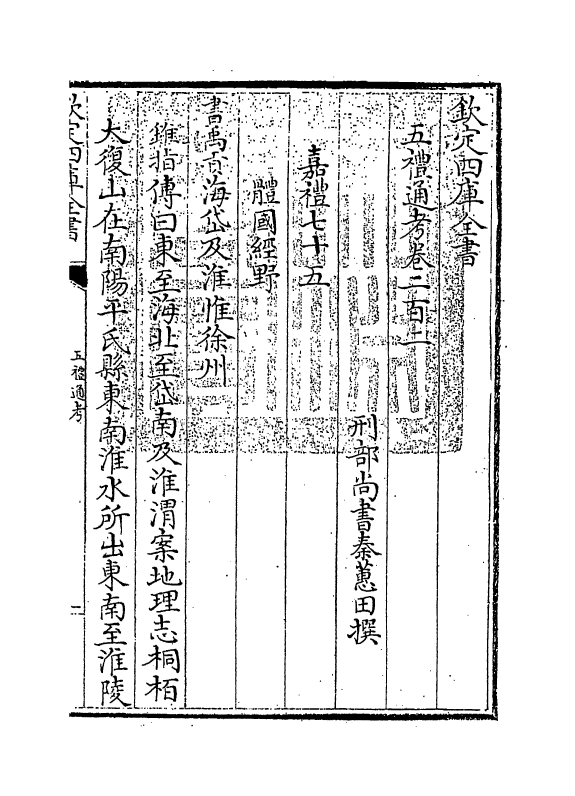 欽定四庫全書
五禮通考卷二百二
刑部尚書秦蕙田撰
嘉禮七十五
體國經野
書禹貢海岱及淮惟徐州
錐指傳曰東至海北至岱南及淮渭案地理志桐栢
大復山在南陽平氏縣東南淮水所出東南至淮陵
欽定四庫全書
五禮通考